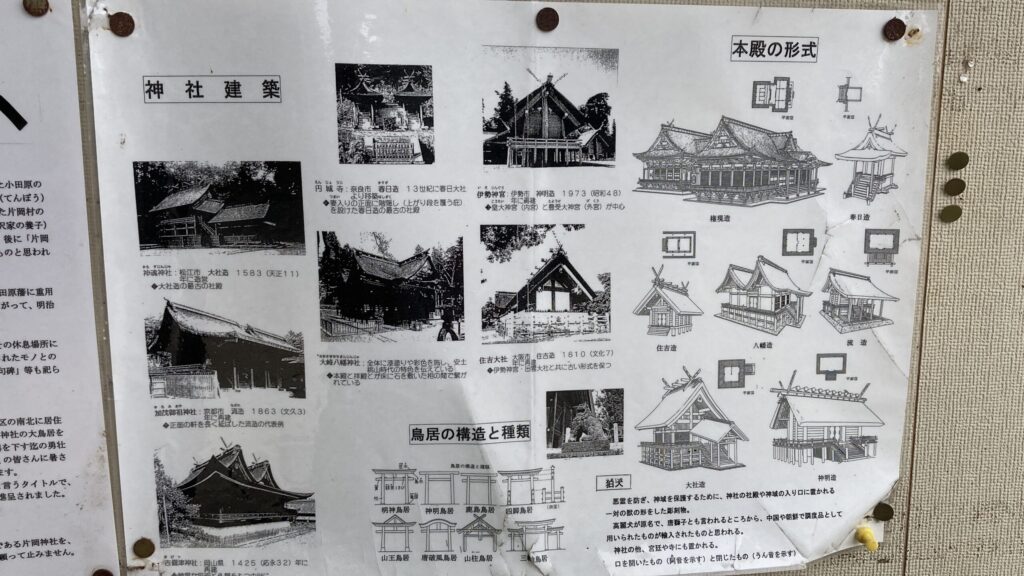 神社建築
円城寺：奈良市 春日造 13世紀に春日大社
より移築
を設けた春日造の最古の社殿
伊勢神宮：伊勢市 神明造 1973（昭和48）
年に再建
◆皇大神宮（内宮）と豊受大神宮（外宮）が中心
神魂神社：松江市 大社造 1583（天正11）
年に造営
◆大社造の最古の社殿
大崎八幡神社：全体に漆塗りや彩色を施し、安土
桃山時代の特色を伝えている
◆本殿と拝殿とが床に石を敷いた相の間で繋が
れている
住吉大社 大阪市 住吉造 1810（文化7）
年に再建
◆伊勢神宮・出雲大社と共に古い形式を保つ
加茂御祖神社：京都市 流造 1863（文久3）
年に再建
◆正面の軒を長く延ばした流造の代表例
吉備津神社：岡山県 1425（応永32）年に
再建
鳥居の構造と種類
鳥居の構造と種類
明神鳥居
神明鳥居
鹿島鳥居
両部鳥居
山王鳥居
唐破風鳥居
三柱鳥居
本殿の形式
平面図
平面図
権現造
春日造
平面図
平面図
平面図
住吉造
八幡造
流造
平面図
平面図
大社造
神明造
狛犬
悪霊を防ぎ、神域を保護するために、神社の社殿や神域の入り口に置かれる
一対の獣の形をした彫刻物。
高麗犬が原名で、唐獅子とも言われるところから、中国や朝鮮で調度品として
用いられたものが輸入されたものと思われる。
神社の他、宮廷や寺にも置かれる。
口を開いたもの（阿音を示す）と閉じたもの（うん音を示す）
小田原の
（てんぽう）
た片岡村の
沢家の養子）
後に「片岡
ものと思われ
田原藩に重用
がって、明治
その休息場所に
されたモノとの
句碑」等も祀ら
区の南北に居住
神社の大鳥居を
を下す迄の勇壮
の皆さんに暑さ
ます。
言うタイトルで、
進呈されました。
である片岡神社を、
願って止みません。